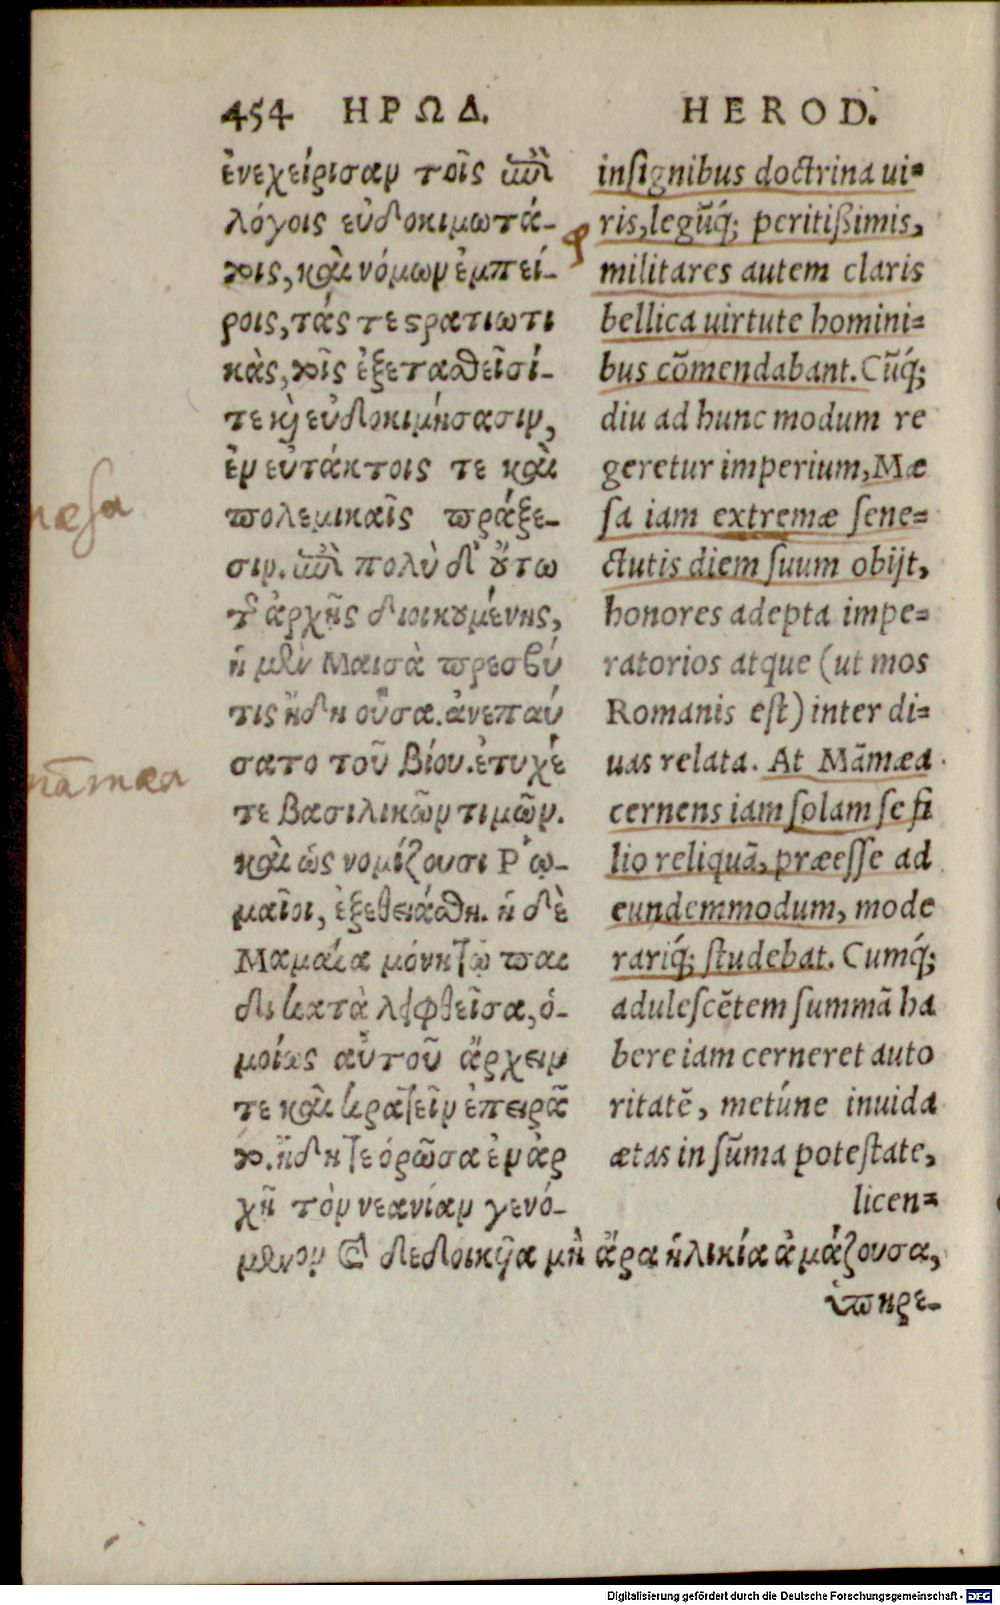 454 ΗΡΩΔ.
ἐνεχείρισαν τοῖς ἐπὶ
λόγοις εὐδοκιμωτά-
τοις, καὶ νόμων ἐμπεί-
ροις, τάς τε στρατιωτι
κὰς, τοῖς ἐξετασθεῖσί-
τε καὶ εὐδοκιμήσασιν,
ἐν εὐτάκτοις τε καὶ
πολεμικαῖς πράξε-
σιν. ἐπὶ πολὺ δ' οὕτω
τῆς ἀρχῆς διοικουμένης,
ἡ μὲν Μαισὰ πρεσβύ
τις ἤδη οὖσα. ἀνεπαύ
σατο τοῦ βίου. ἐτυχέ
τε βασιλικῶν τιμῶν.
καὶ ὡς νομίζουσι Ῥω-
μαῖοι, ἐξεθειάσθη. ἡ δὲ
Μαμαία μόνη τῷ παι
δὶ καταλειφθεῖσα, ὁ-
μοίως αὐτοῦ ἄρχειν
τε καὶ κρατεῖν ἐπειρᾶ
το. ἤδη τε ὁρῶσα ἐν ἀρ
χῇ τὸν νεανίαν γενό-
μενον καὶ δεδοικῦα μὴ ἄρα ἡλικία ἀκμάζουσα,
ὑπηρε-
HEROD.
insignibus doctrina ui-
ris, legũq́; peritißimis,
militares autem claris
bellica uirtute homini-
bus cõmendabant. Cũq́;
diu ad hunc modum re
geretur imperium, Mæ
sa iam extremæ sene-
ctutis diem suum obijt,
honores adepta impe-
ratorios atque (ut mos
Romanis est) inter di-
uas relata. At Mãmæa
cernens iam solam se fi
lio reliquã, præesse ad
eundemmodum, mode
rariq́; studebat. Cumq́;
adulescẽtem summã ha
bere iam cerneret auto
ritatẽ, metúne inuida
ætas in sũma potestate,
licen-
mæsa
mãmæa
Digitalisierung gefördert durch die Deutsche Forschungsgemeinschaft - DFG